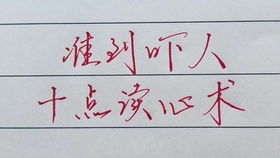 准到吓人
十点读心术